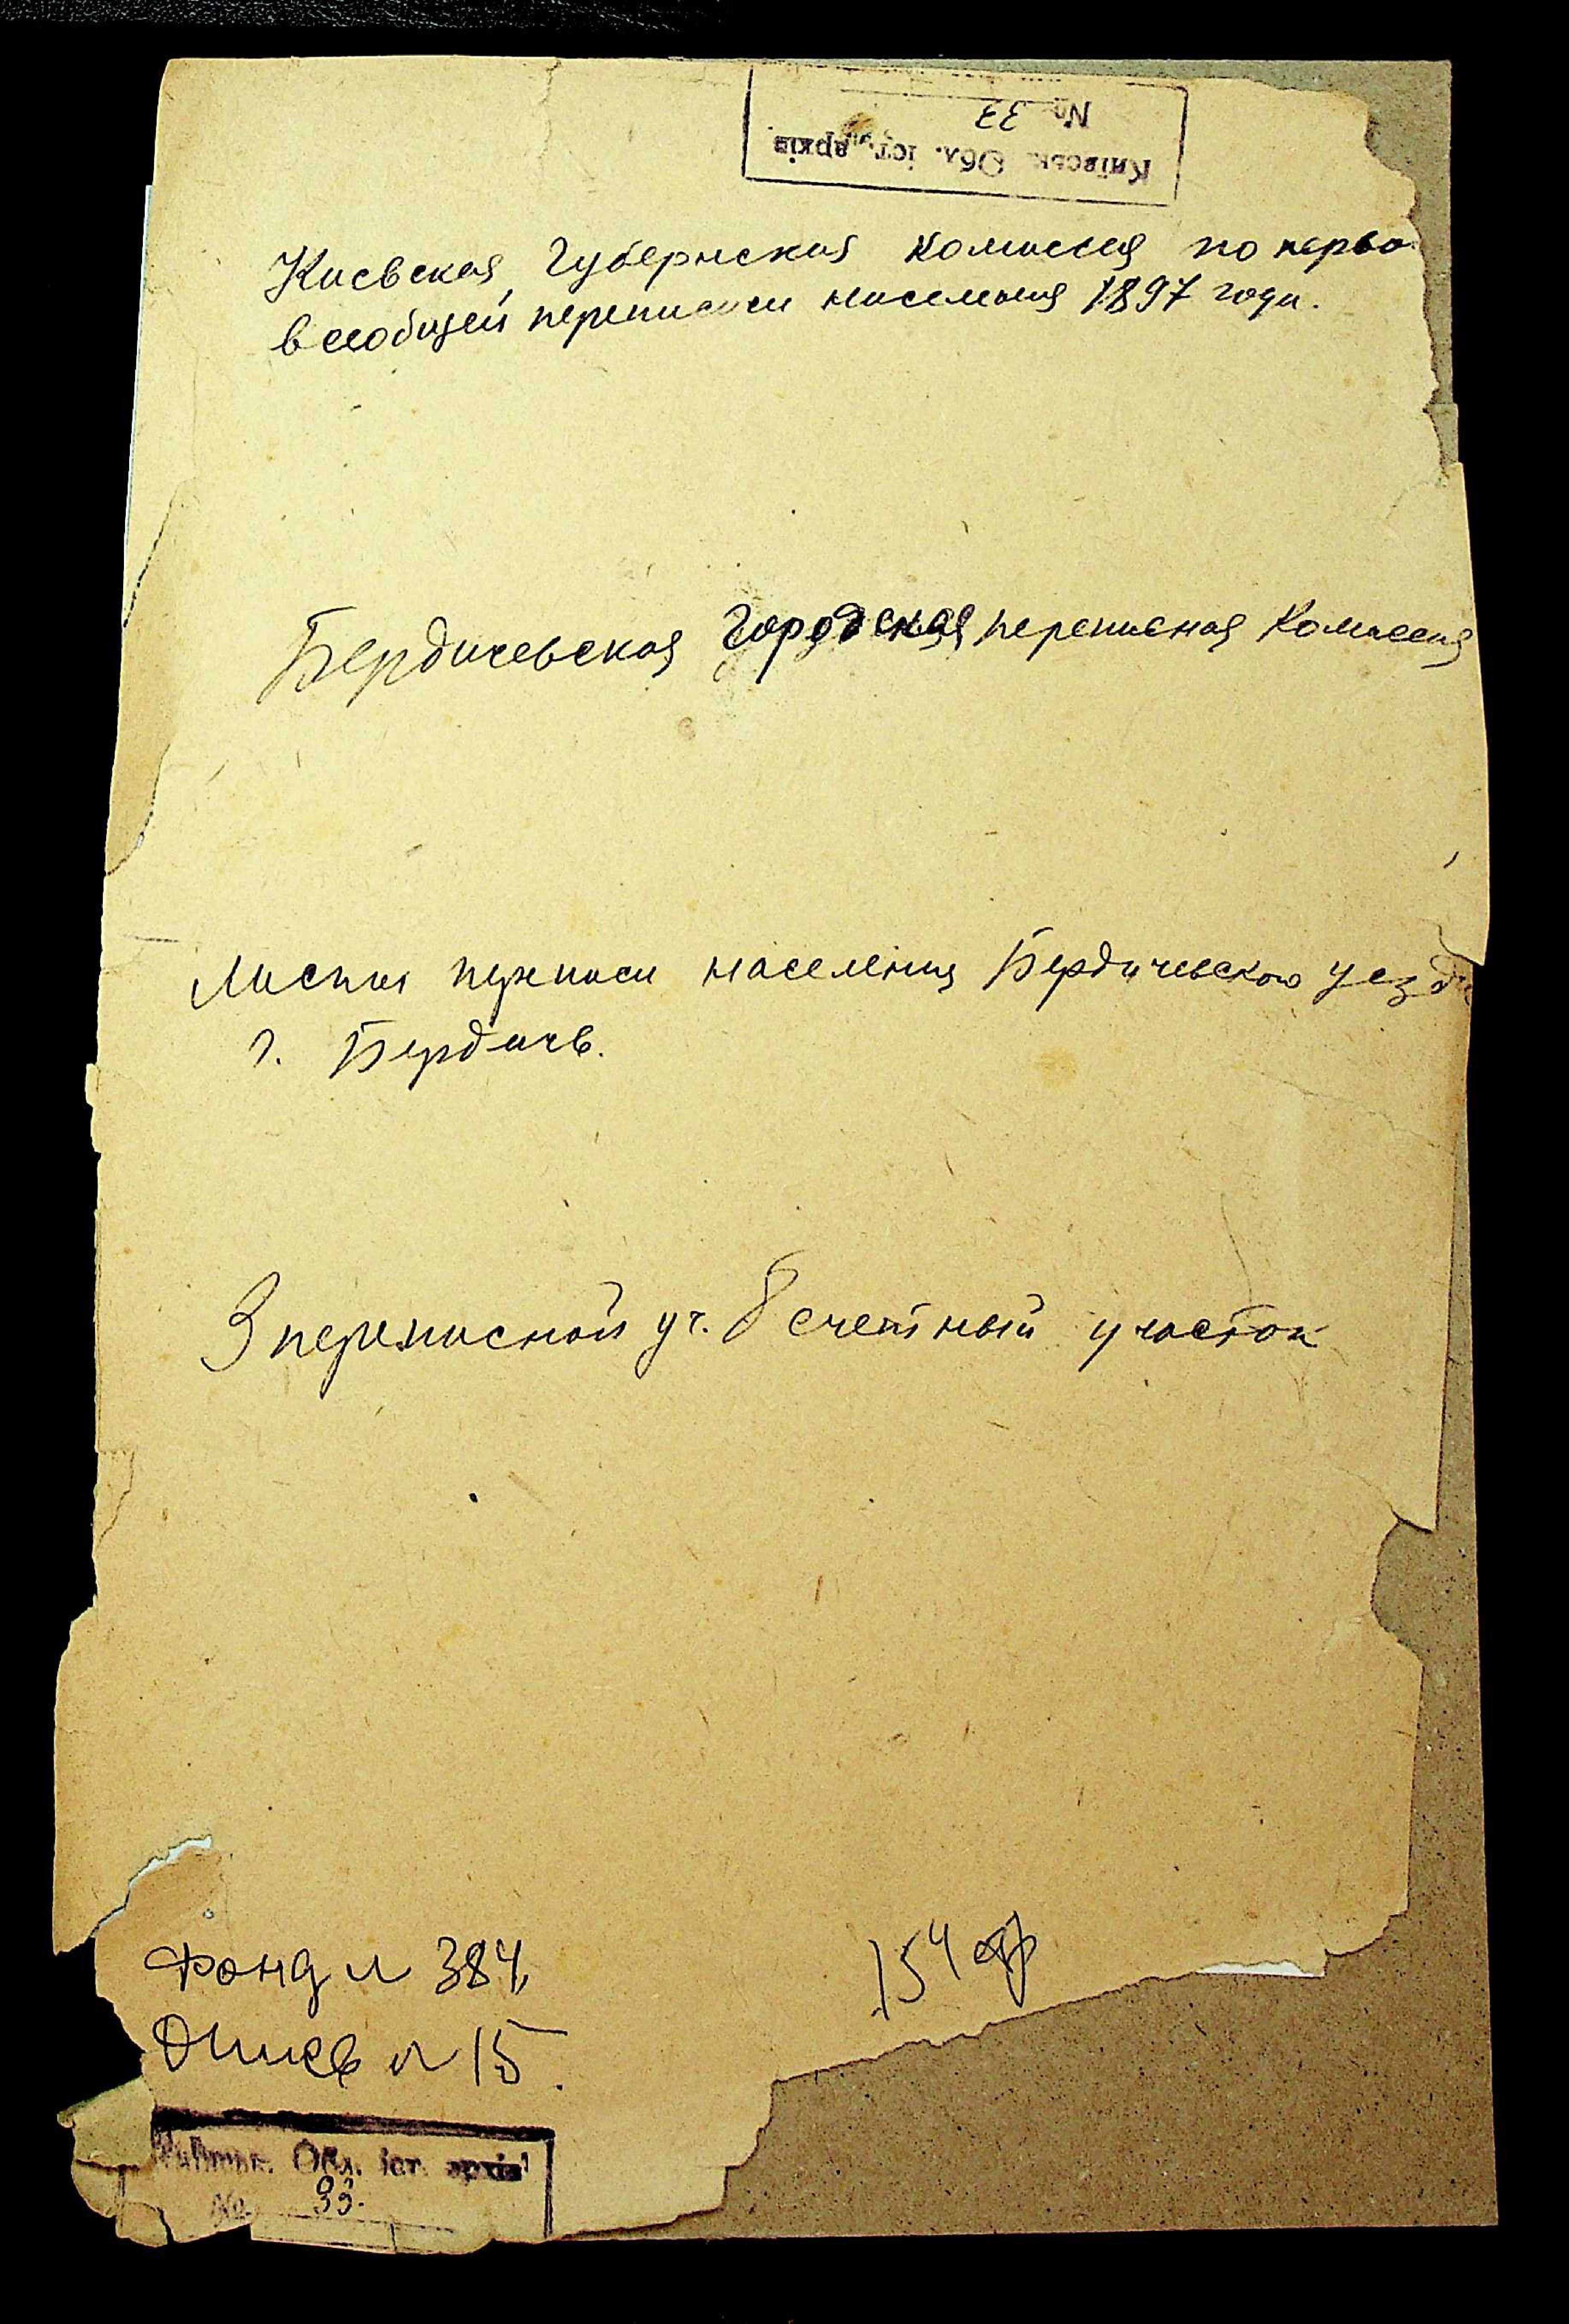 Київськ. Обл. іст. архів
№ 33
Киевская Губернская Комиссия по перво
всеобщей переписи населения 1897 года.
Бердичевская Городская переписная Комиссия
Листы переписи населения Бердичевского уезда
г. Бердичев.
3 переписной уч. 8 счетный участок
Фонд № 384
Опись № 15.
154
Обл. іст. архів
№ 33.